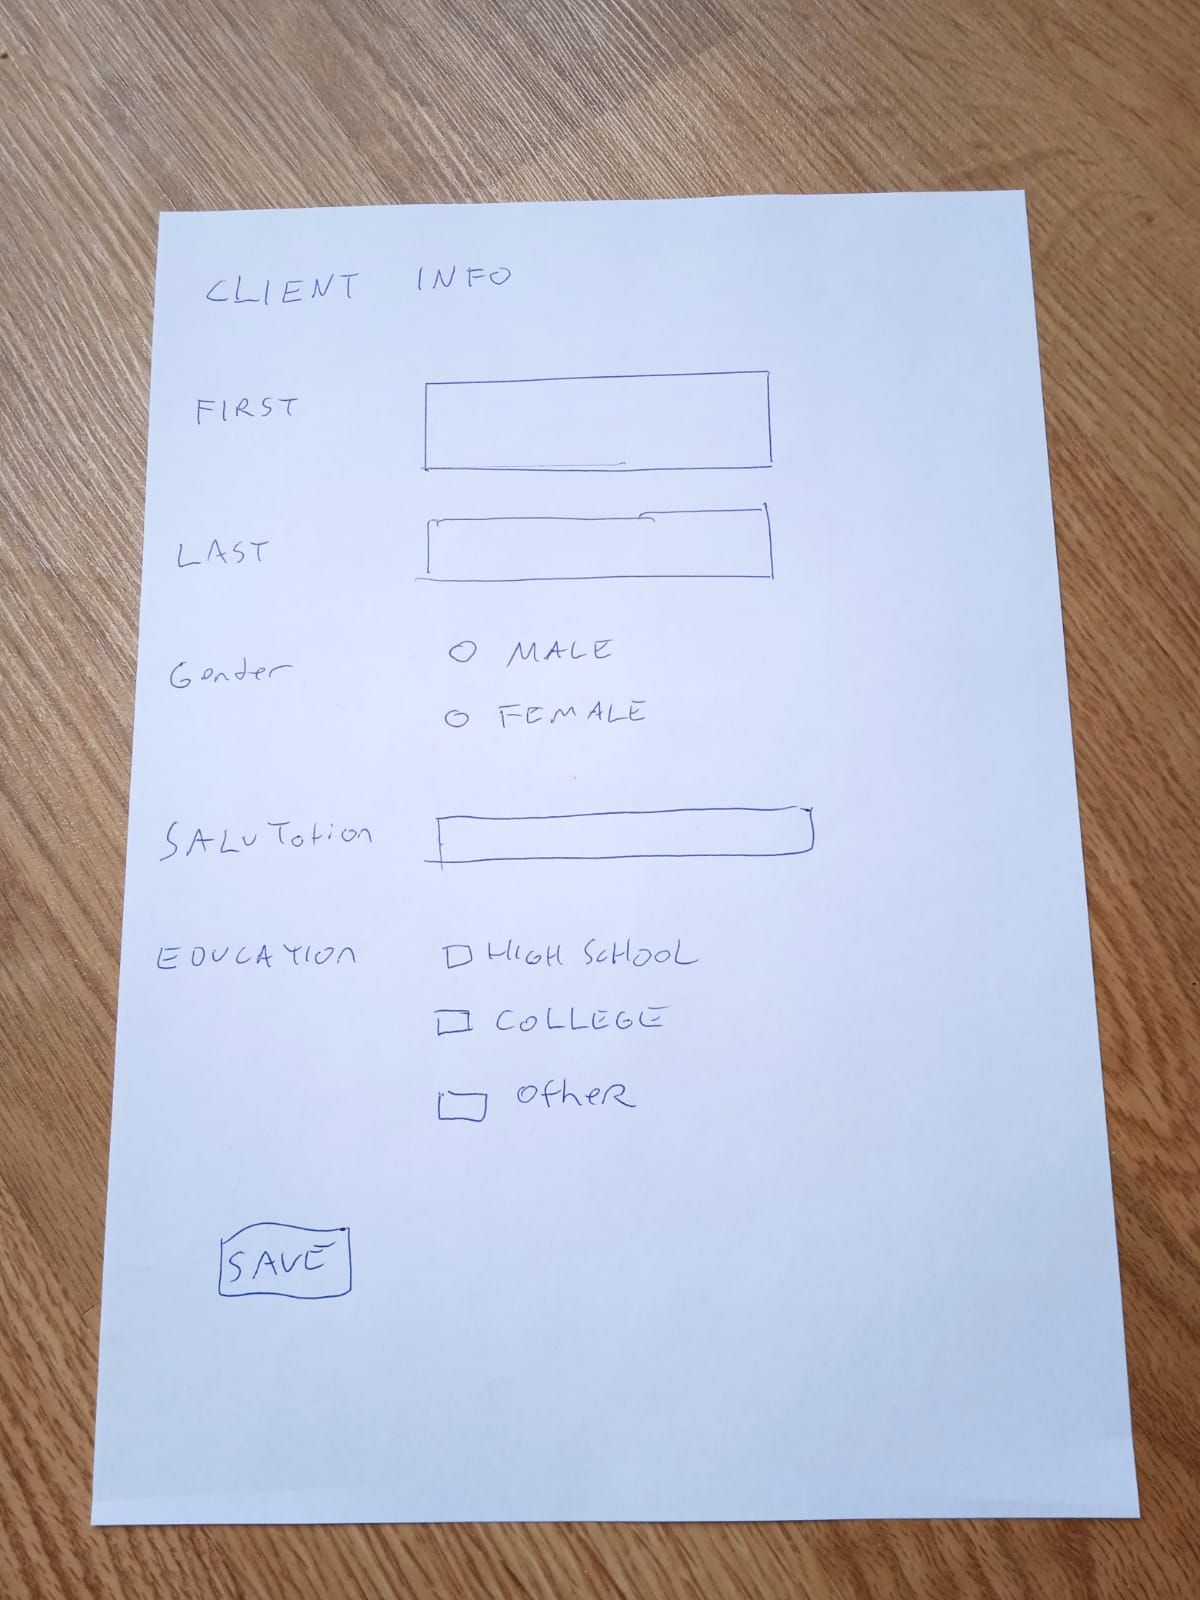 CLIENT INFO
FIRST
LAST
Gender
MALE
FEMALE
SALUTation
EDUCATION
HIGH SCHOOL
COLLEGE
OtheR
SAVE